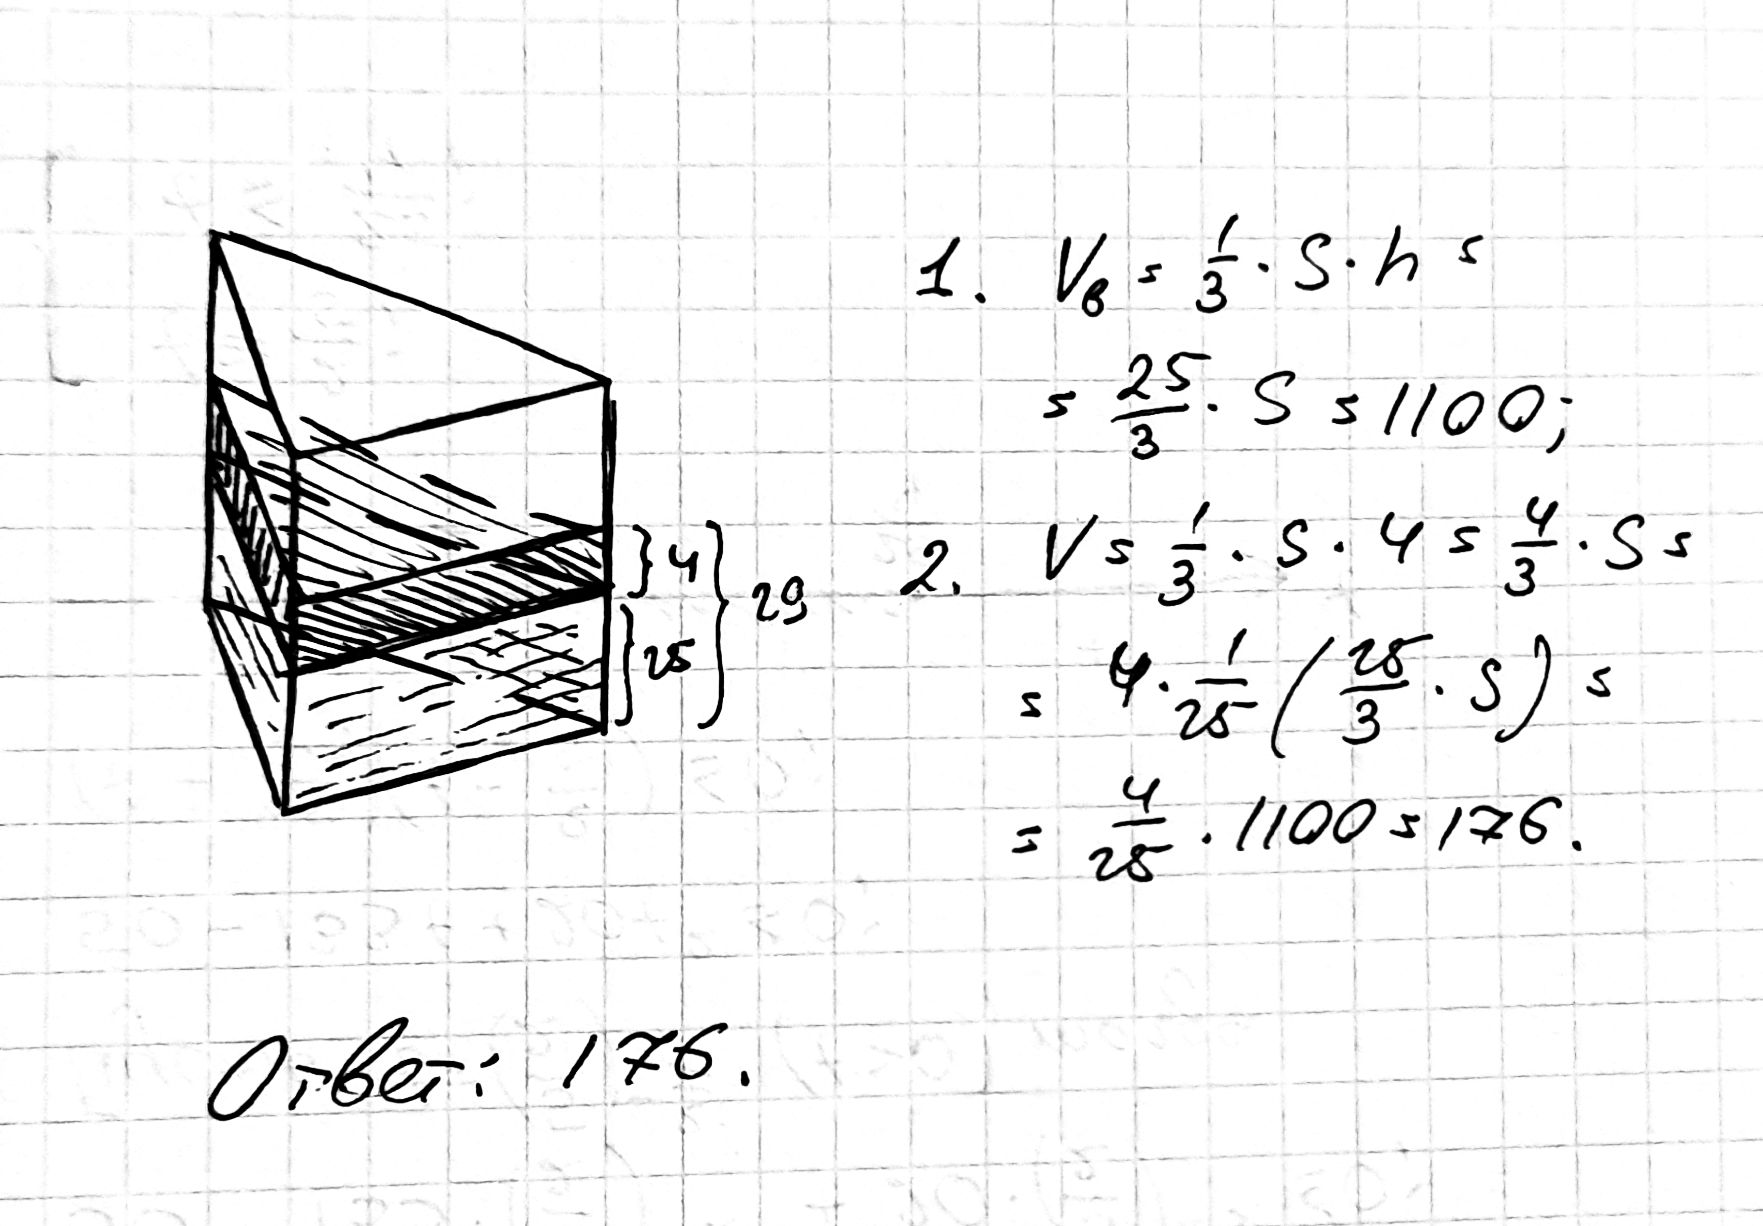 1. Vв = 1/3 · S · h =
= 25/3 · S = 1100;
2. V = 1/3 · S · 4 = 4/3 · S =
= 4 · 1/25 (25/3 · S) =
= 4/25 · 1100 = 176.
} 4
} 25
} 29
Ответ: 176.